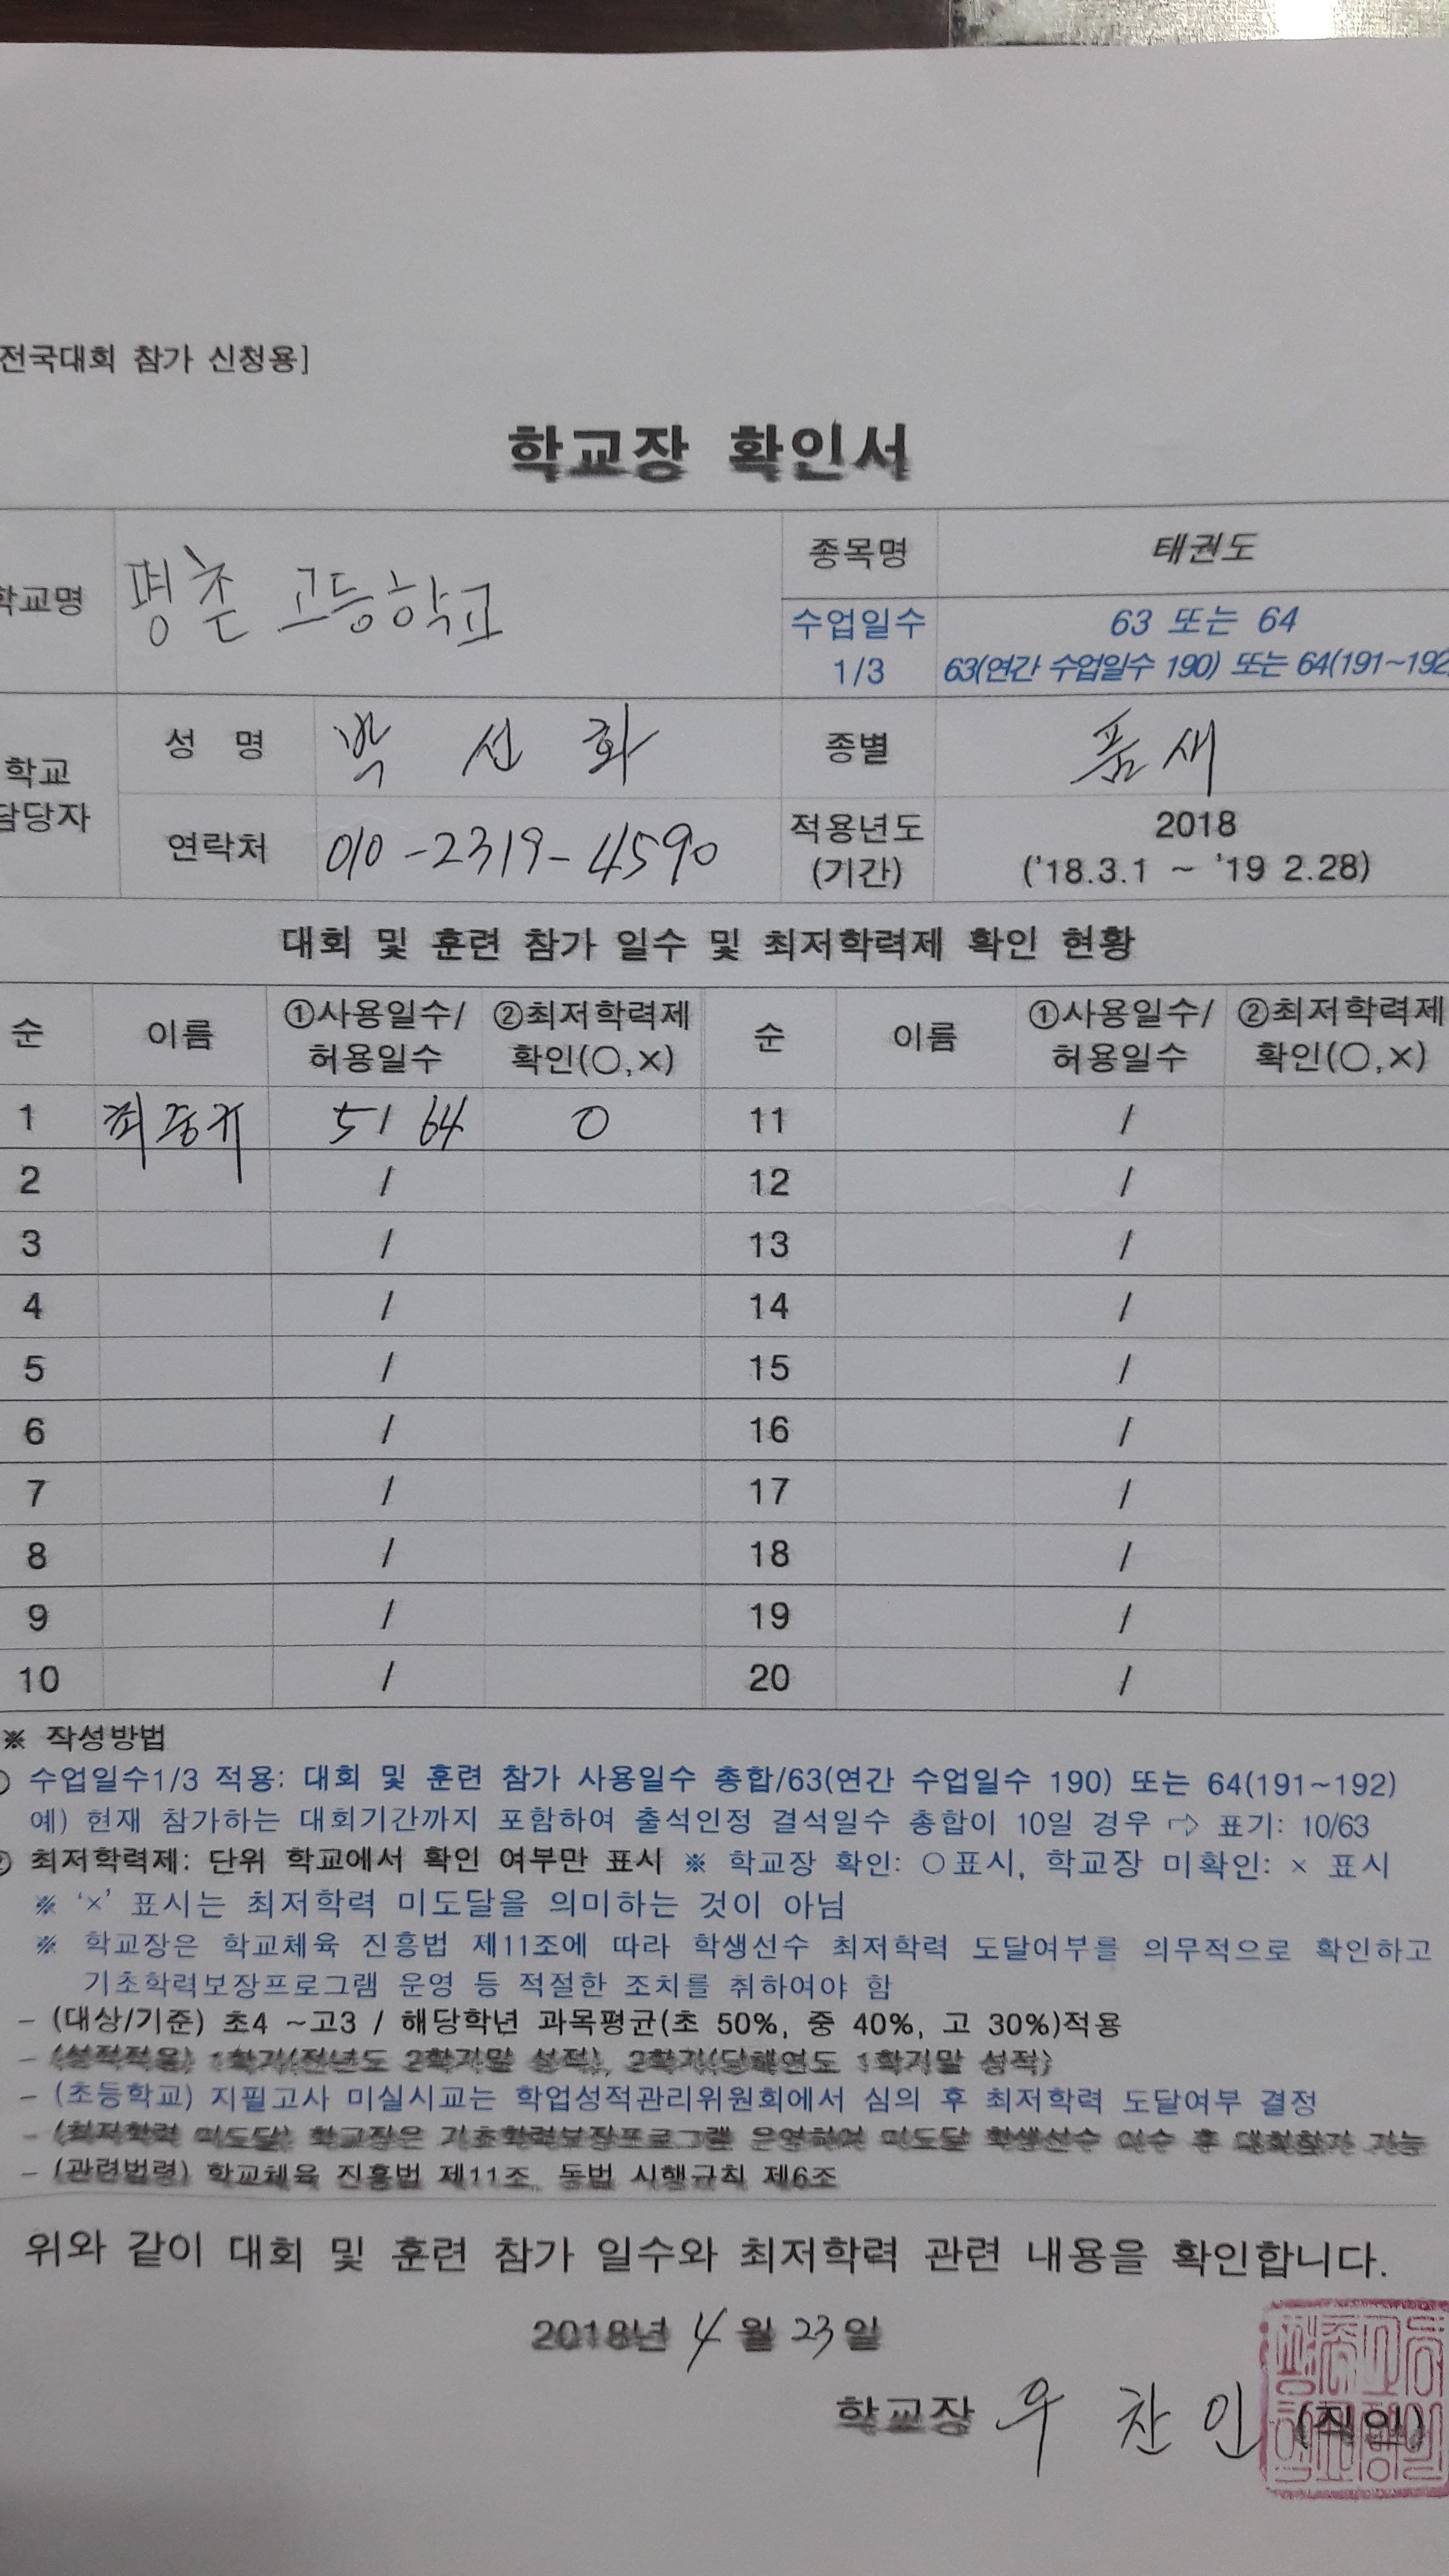 전국대회 참가 신청용]
학교장 확인서
학교명 평촌 고등학교 종목명 태권도
수업일수 1/3 63 또는 64
63(연간 수업일수 190) 또는 64(191~192
학교 담당자 성 명 박 선 화 종별 품새
연락처 010-2319-4590 적용년도 (기간) 2018
('18.3.1 ~ '19 2.28)
대회 및 훈련 참가 일수 및 최저학력제 확인 현황
순 이름 ①사용일수/허용일수 ②최저학력제 확인(○,×) 순 이름 ①사용일수/허용일수 ②최저학력제 확인(○,×)
1 최동규 5/64 O 11 /
2 / 12 /
3 / 13 /
4 / 14 /
5 / 15 /
6 / 16 /
7 / 17 /
8 / 18 /
9 / 19 /
10 / 20 /
※ 작성방법
수업일수1/3 적용: 대회 및 훈련 참가 사용일수 총합/63(연간 수업일수 190) 또는 64(191~192)
예) 현재 참가하는 대회기간까지 포함하여 출석인정 결석일수 총합이 10일 경우 ⇨ 표기: 10/63
최저학력제: 단위 학교에서 확인 여부만 표시 ※ 학교장 확인: ○표시, 학교장 미확인: × 표시
※ '×' 표시는 최저학력 미도달을 의미하는 것이 아님
※ 학교장은 학교체육 진흥법 제11조에 따라 학생선수 최저학력 도달여부를 의무적으로 확인하고
기초학력보장프로그램 운영 등 적절한 조치를 취하여야 함
- (대상/기준) 초4 ~고3 / 해당학년 과목평균(초 50%, 중 40%, 고 30%)적용
- (성적적용) 1학기(전년도 2학기말 성적), 2학기(당해연도 1학기말 성적)
- (초등학교) 지필고사 미실시교는 학업성적관리위원회에서 심의 후 최저학력 도달여부 결정
- (최저학력 미도달) 학교장은 기초학력보장프로그램 운영하여 미도달 학생선수 이수 후 대회참가 가능
- (관련법령) 학교체육 진흥법 제11조, 동법 시행규칙 제6조
위와 같이 대회 및 훈련 참가 일수와 최저학력 관련 내용을 확인합니다.
2018년 4월 23일
학교장 우 찬 인 (직인)